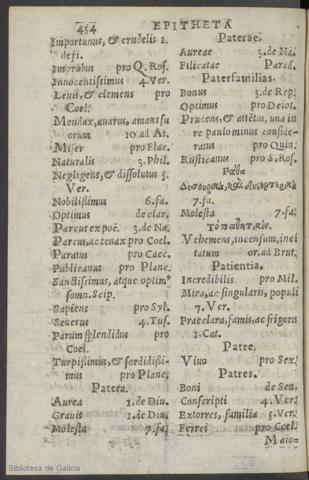 454 EPITHETA
Importunus, & crudelis 1.
defi.
Improbus pro Q. Ros.
Innocentissimus 4. Ver.
Leuis, & clemens pro
Coel.
Mendax, auarus, amans su
orum 10. ad At.
Miser pro Flac.
Naturalis 3. Phil.
Negligens, & dissolutus 5.
Ver.
Nobilißimus 6. fa.
Optimus de clar.
Parcus ex poë. 3. de Na.
Parcus, ac tenax pro Coel.
Paratus pro Caec.
Publicanus pro Planc.
Sanctissimus, atque optim°
somn. Scip.
Sapiens pro Syl.
Seuerus 4. Tus.
Parum splendidus pro
Coel.
Turpißimus, & sordidißi-
mus pro Planc.
Patera.
Aurea 1. de Diu.
Grauis 1. de Diu.
Molesta 7. fa.
Paterae.
Aureae 3. de Na.
Filicatae Parad.
Paterfamilias.
Bonus 5. de Rep.
Optimus pro Deiot.
Prudens, & attētus, una in
re paulo minus conside-
ratus pro Quin.
Rusticanus pro S. Ros.
Πάθη
Δυσουρικὰ, καὶ δυσεντερικὰ
7. fa.
Molesta 7. fa.
Τὸ παθητικόν.
Vehemens, incensum, inci
tatum or. ad Brut.
Patientia.
Incredibilis pro Mil.
Mira, ac singularis, populi
7. Ver.
Praeclara, famis, ac frigoris
1. Cat.
Patre.
Viuo pro Sex.
Patres.
Boni de Sen.
Conscripti 4. Ver.
Extorres, familia 5. Ver.
Ferrei pro Coel.
Maio=
Biblioteca de Galicia